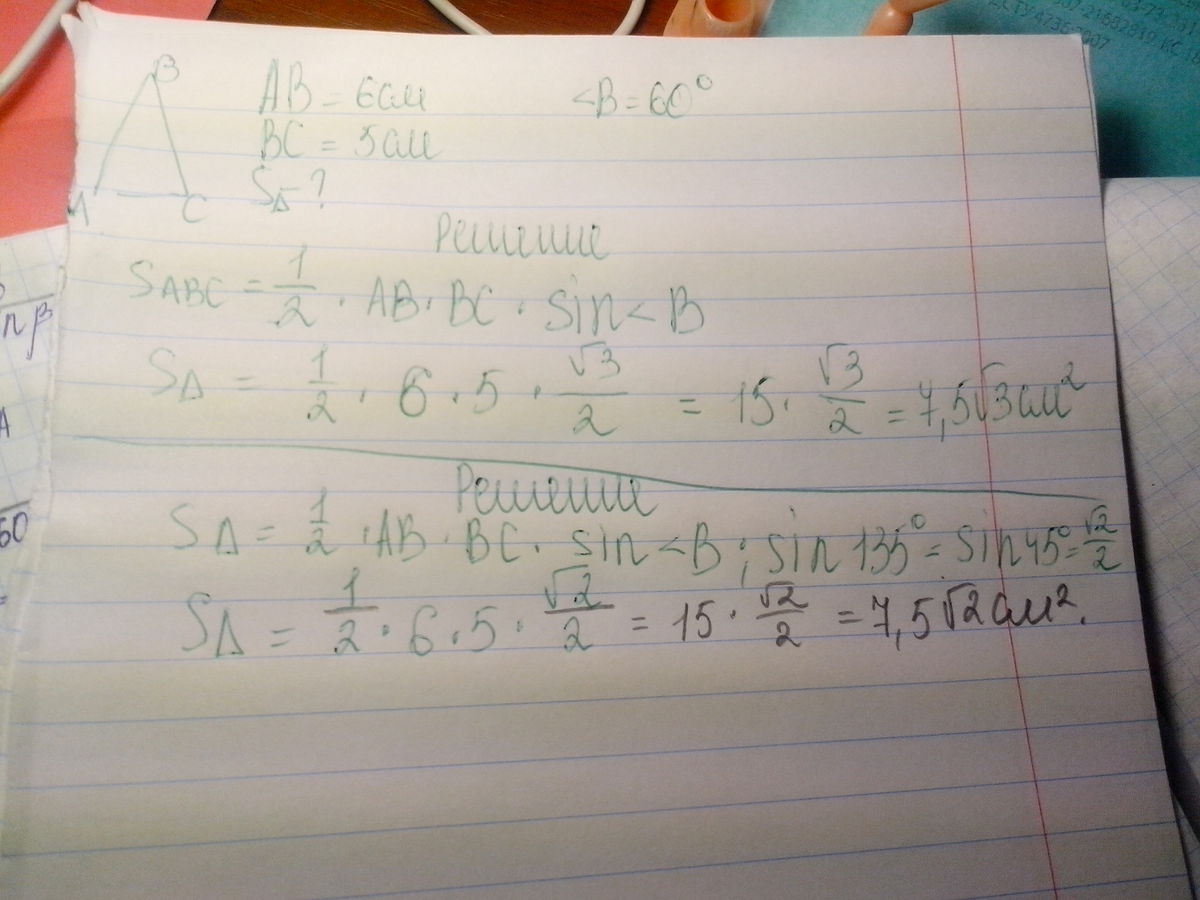 B
AB = 6см <B = 60°
BC = 5см
A C S△ - ?
Решение
S_ABC = 1/2 · AB · BC · sin < B
S△ = 1/2 · 6 · 5 · √3/2 = 15 · √3/2 = 7,5√3 см²
Решение
S△ = 1/2 · AB · BC · sin < B ; sin 135° = sin 45° = √2/2
S△ = 1/2 · 6 · 5 · √2/2 = 15 · √2/2 = 7,5√2 см².